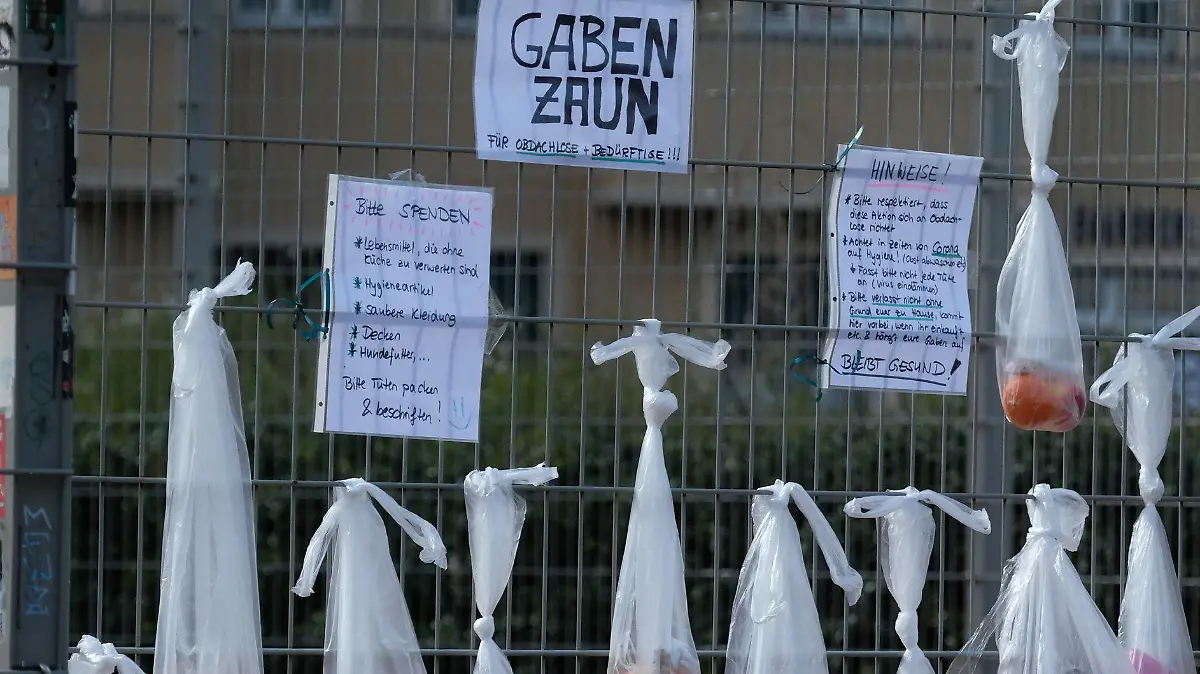 GABEN
ZAUN
FÜR OBDACHLOSE + BEDÜRFTIGE!!!
Bitte SPENDEN
* Lebensmittel, die ohne
Küche zu verwerten sind
* Hygieneartikel
* saubere Kleidung
* Decken
* Hundefutter,...
Bitte Tüten packen
& beschriften!
HINWEISE!
* Bitte respektiert, dass
diese Aktion sich an Obdach-
lose richtet
* Achtet in Zeiten von Corona
auf Hygiene! (Obst abwaschen etc)
* Fasst bitte nicht jede Tüte
an (Virus eindämmen)
* Bitte verlasst nicht ohne
Grund euer zu Hause, kommt
hier vorbei, wenn ihr einkauft
etc. & hängt eure Gaben auf
BLEIBT GESUND!